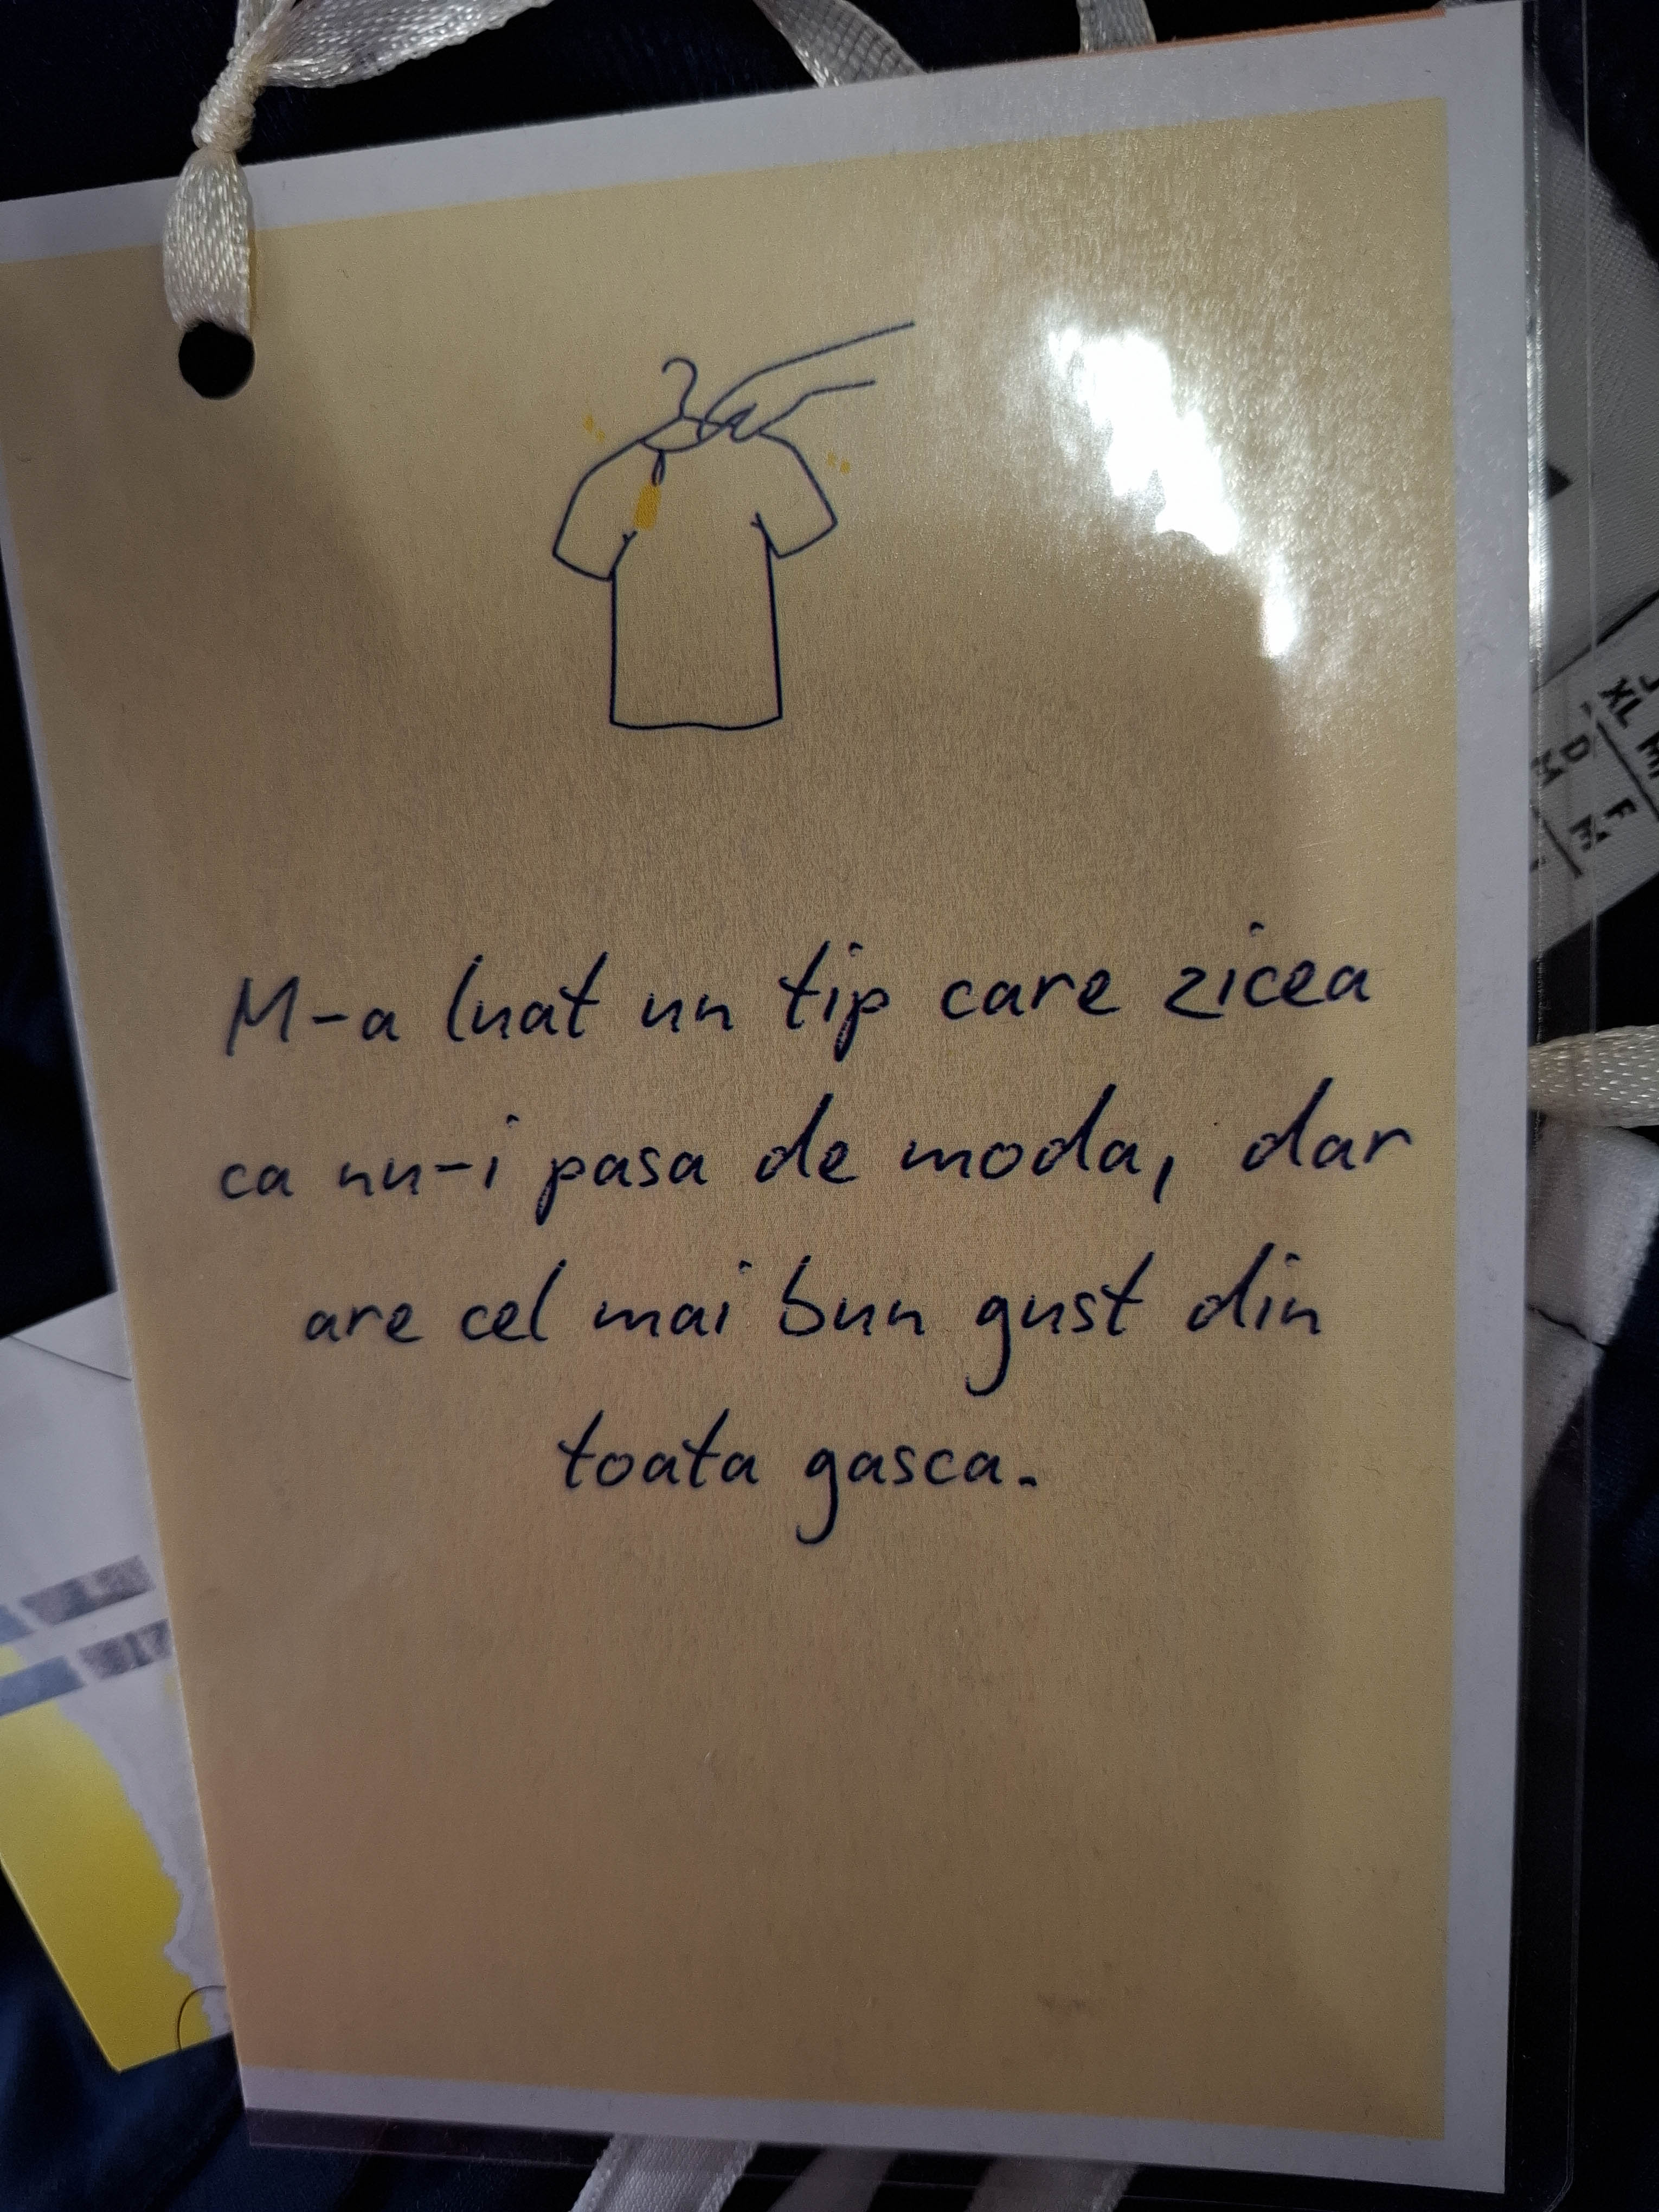 M-a luat un tip care zicea
ca nu-i pasa de moda, dar
are cel mai bun gust din
toata gasca.
XL
D
M
F